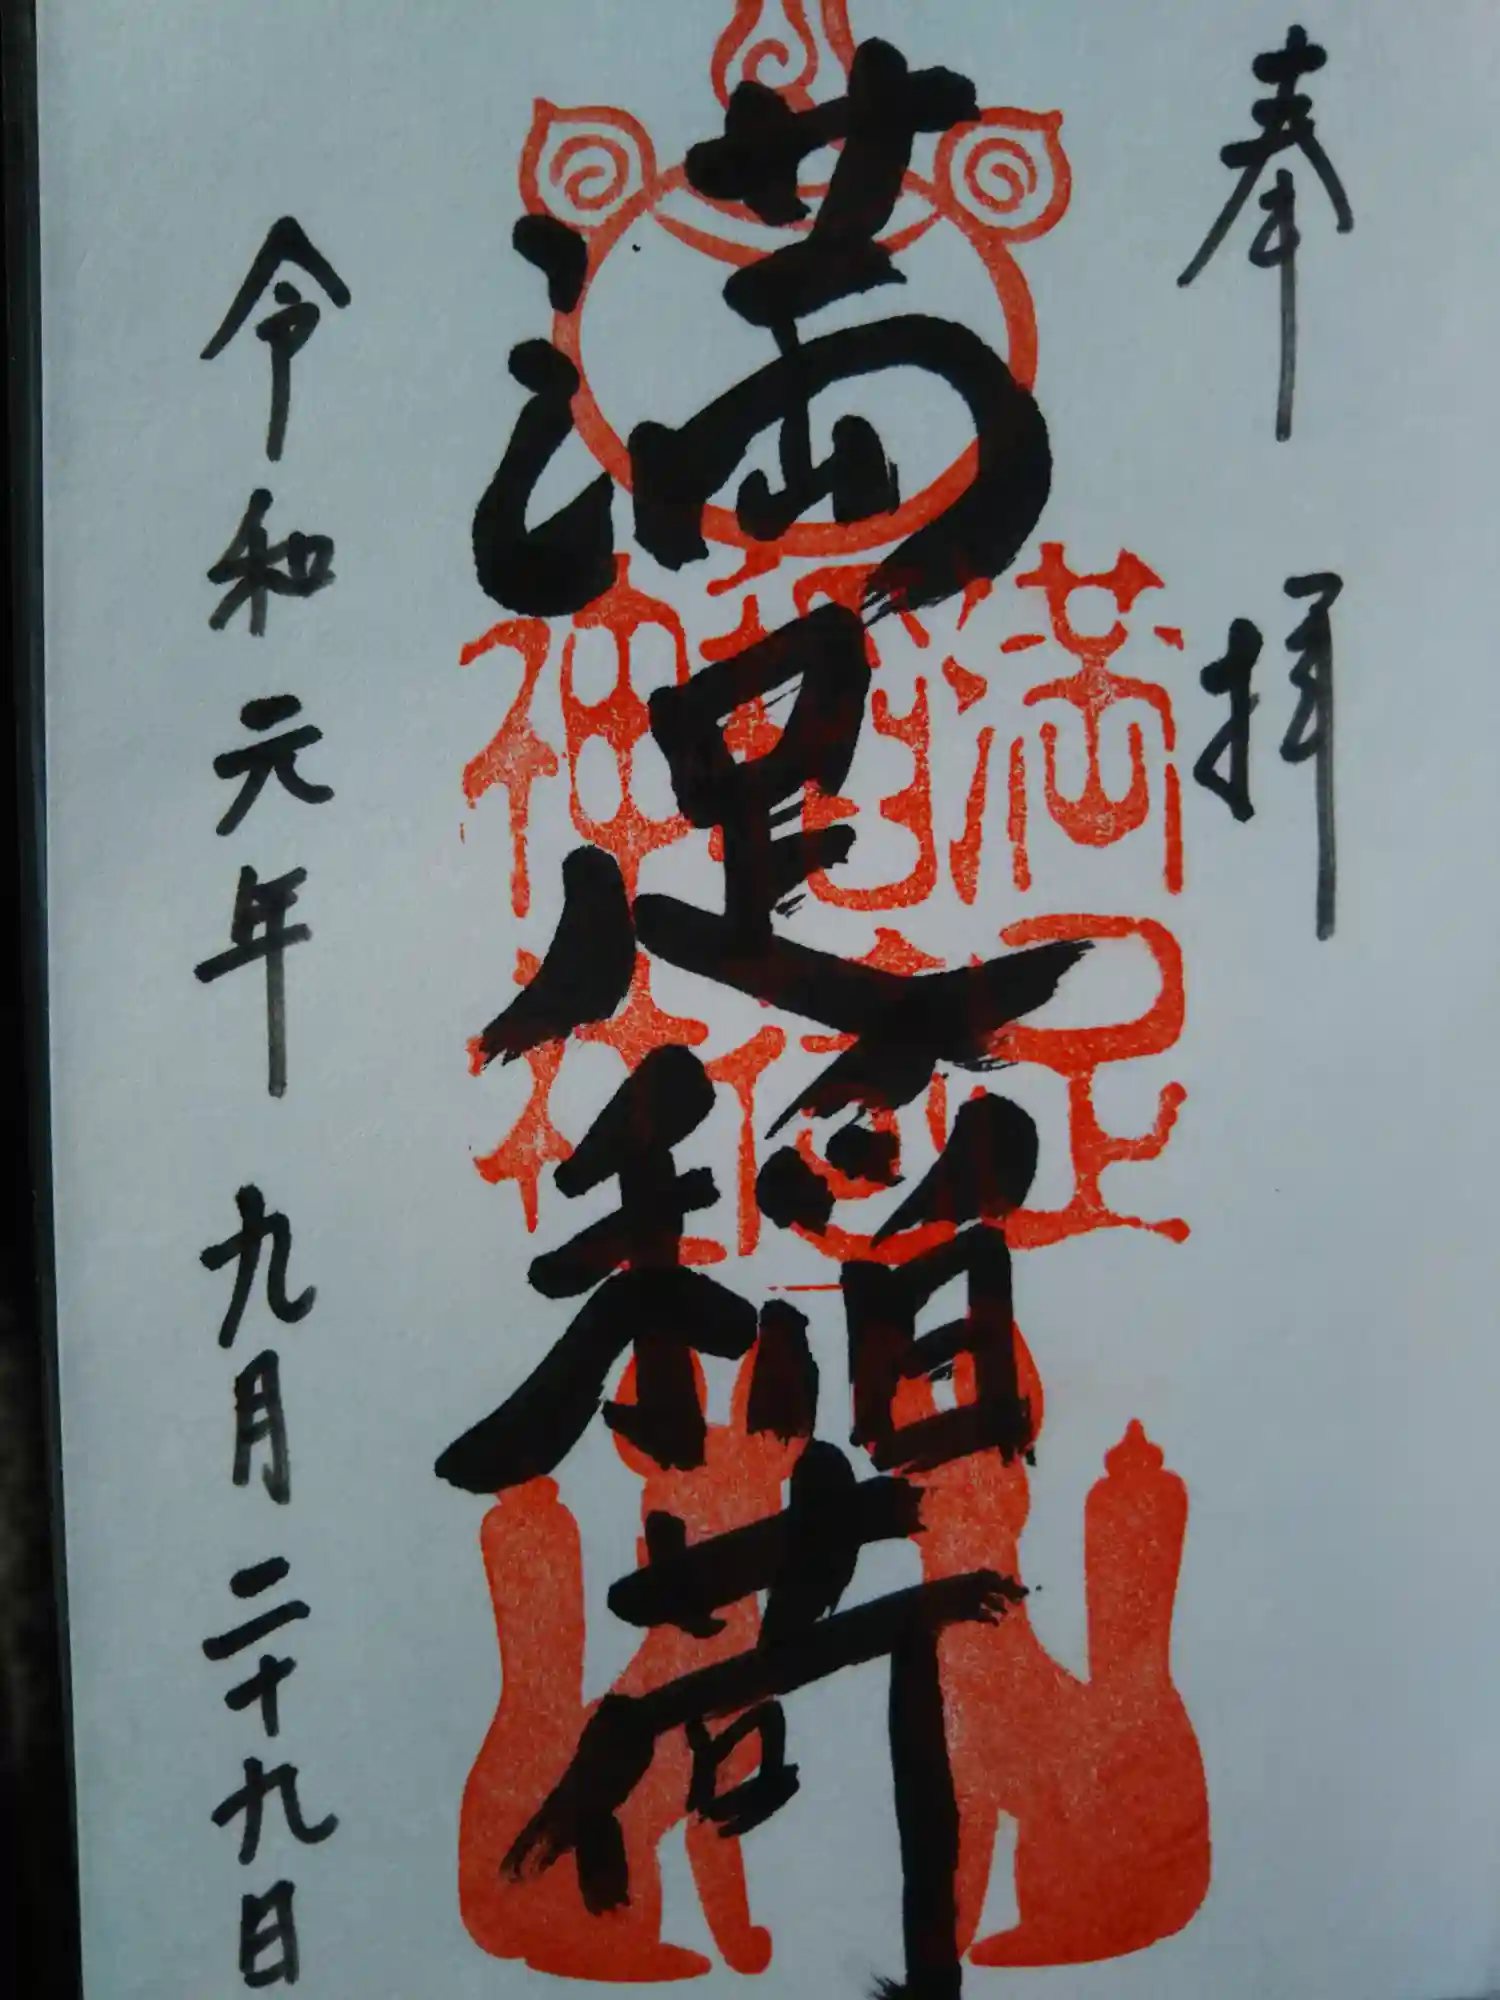 奉拝
満足稲荷
満足稲荷神社
令和元年 九月二十九日